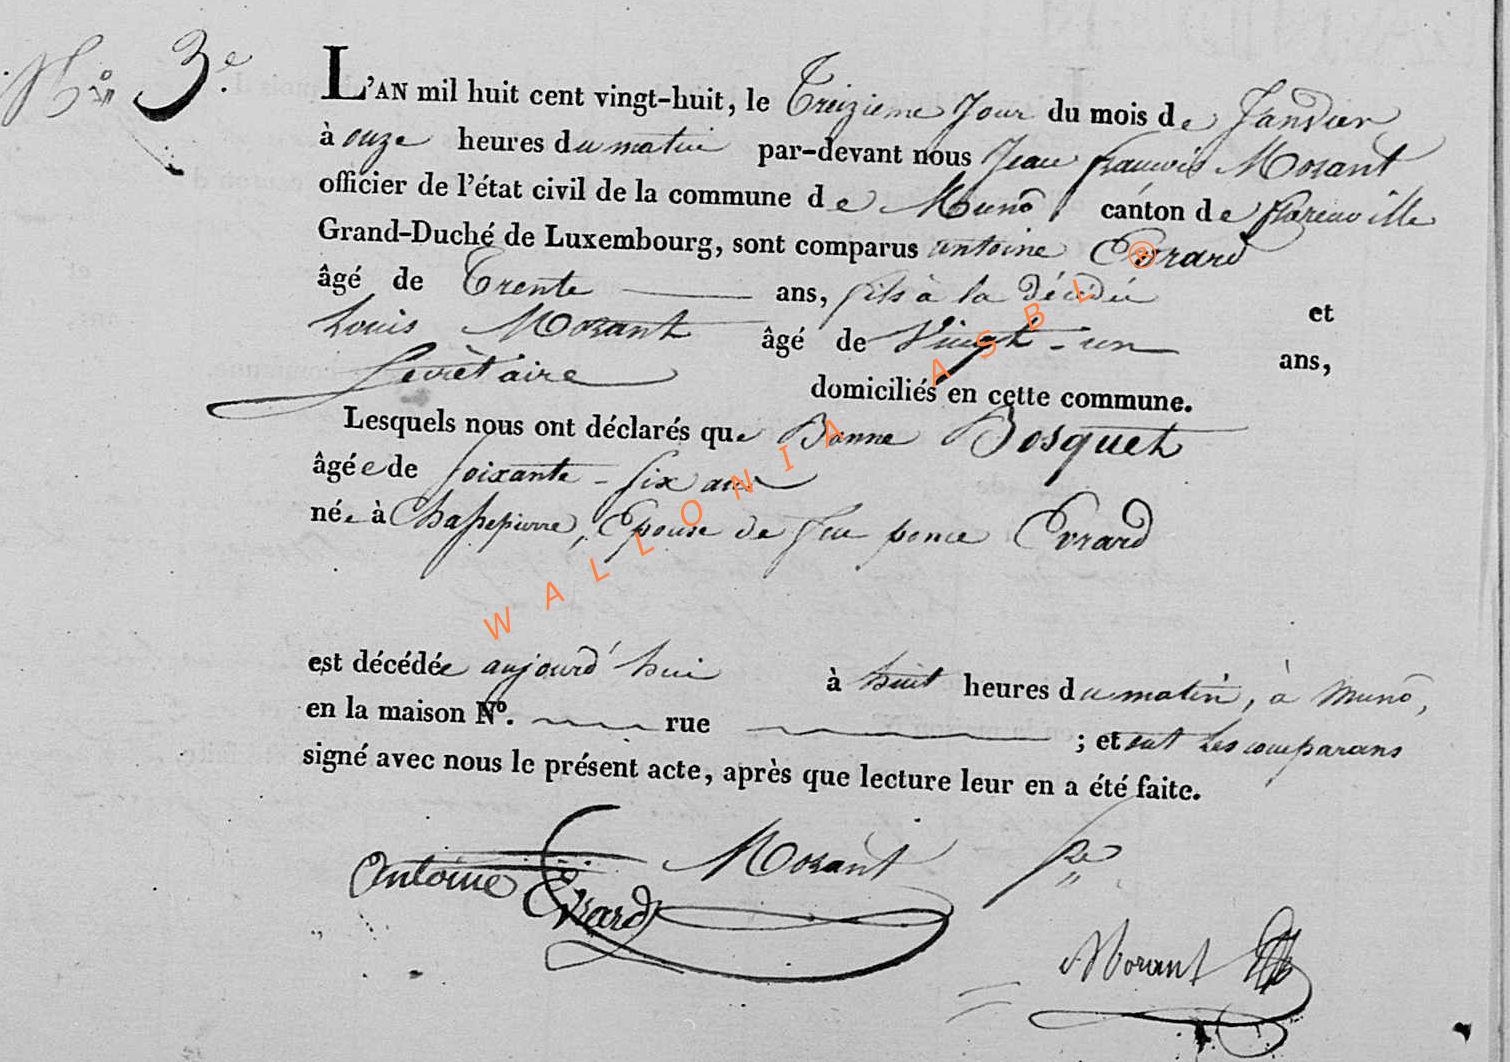 N.º 3e.
L'AN mil huit cent vingt-huit, le Treizieme Jour du mois de Janvier
à onze heures du matin par-devant nous Jean francois Morant
officier de l'état civil de la commune de Muno, canton de florenville
Grand-Duché de Luxembourg, sont comparus antoine Evrard
âgé de Trente ans, fils à la décédée et
Louis Morant âgé de Vingt-un ans,
Secrètaire domiciliés en cette commune.
Lesquels nous ont déclarés que Bonne Bosquet
âgée de soixante-six ans
née à Chassepierre, Epouse de feu ponce Evrard
est décédée aujourd'hui à huit heures du matin, à muno,
en la maison Nº. rue ; et ont les comparans
signé avec nous le présent acte, après que lecture leur en a été faite.
Antoine Evrard Morant
Morant
WALLONIA ASBL ®